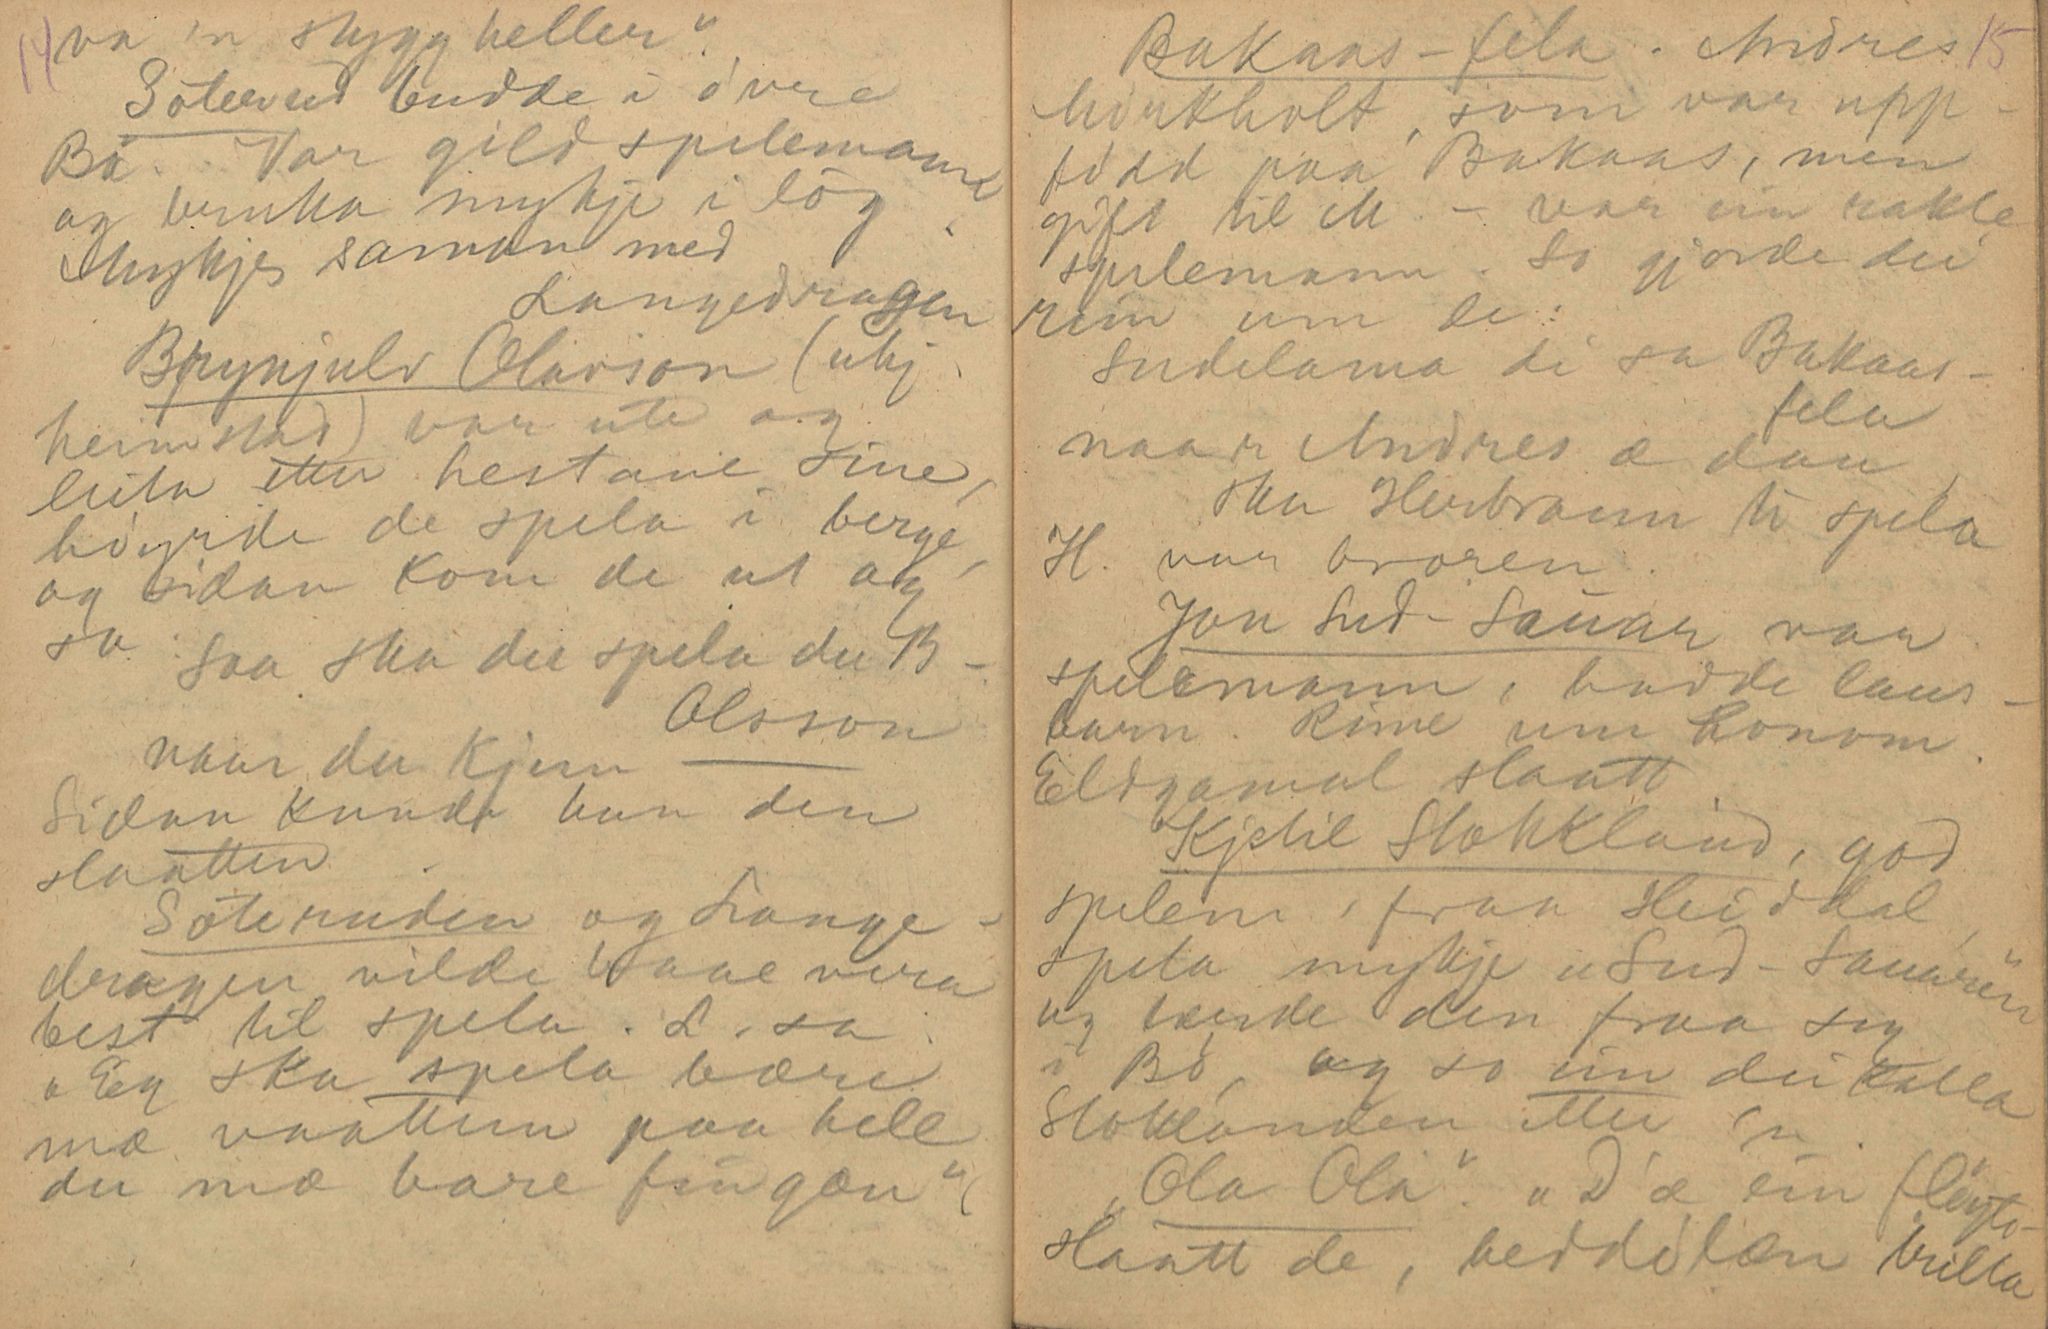 14
va 'n stygg heller".
Söterud budde i övre
Bö. Var gild spelemann
og bruka mykje i lög.
Mykjes saman med
Langedragen
Brynjulv Olavson (ukj.
heimstad) var ute og
leita etter hestane sine,
höyrde de spela i berge,
og sidan kom de ut og
sa:
Saa ska du spela du B-
Olsson
naar du kjem
Sidan kunde han den
slaatten
Söteruden og Lange-
dragen vilde baae vera
best til spela. L. sa:
"Eg ska spela bære
mæ vaatten paa hell
du mæ bare fingæn" (
15
Bakaas-fela. Andres
Mörkholt, som var upp-
född paa Bakaas, men
gift til M. - var ein rakle
spelemann. So gjorde dei
reim um de:
Sudelama di sa Bakaas-
fela
naar Andres æ dau
ska Herbrann ti spela
H. var broren.
Jon Sud-Sauar var
spelemann, hadde laus-
barn. Rime um honom.
Eldgamal slaatt.
Kjetil Stokkland, god
spelem, fraa Heidkal,
spela mykje "Sud-Sauaren"
og lærde den fraa seg
i Bö, og so ein dei kalla
Stoklanden etter 'n.
"Ola Ola". "D'æ ein flöyto-
slaatt de,